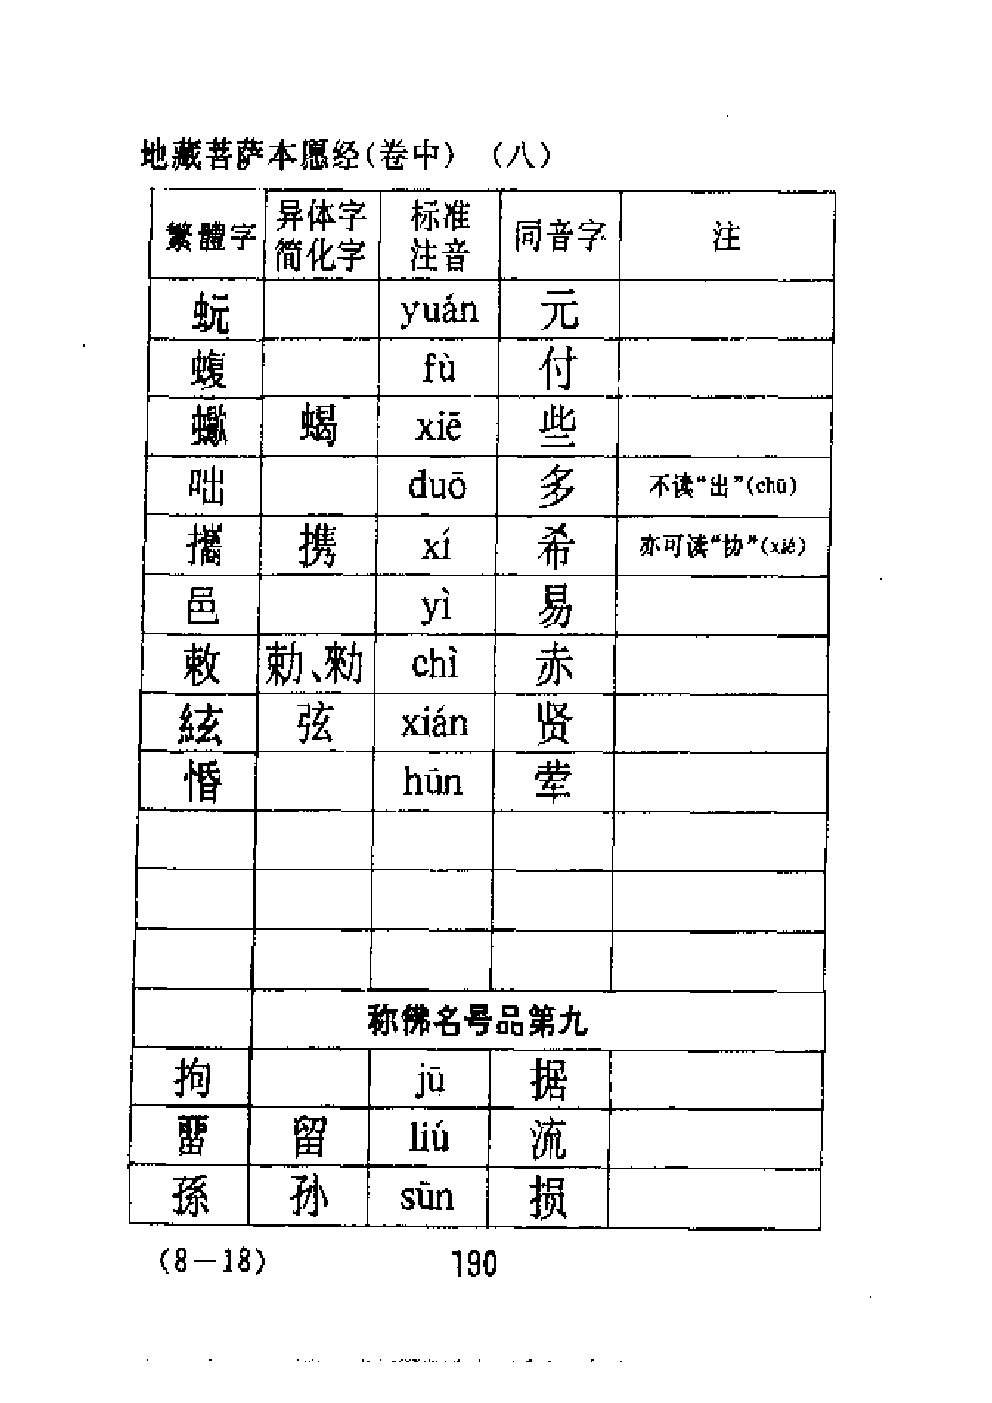 地藏菩萨本愿经(卷中) (八)
繁體字 异体字 简化字 标准注音 同音字 注
蚖 yuán 元
蝮 fù 付
蠍 蝎 xiē 些
咄 duō 多 不读“出”(chū)
攜 携 xí 希 亦可读“协”(xié)
邑 yì 易
敕 勅、勑 chì 赤
絃 弦 xián 贤
惛 hūn 荤
称佛名号品第九
拘 jū 据
留 liú 流
孫 孙 sūn 损
(8-18) 190